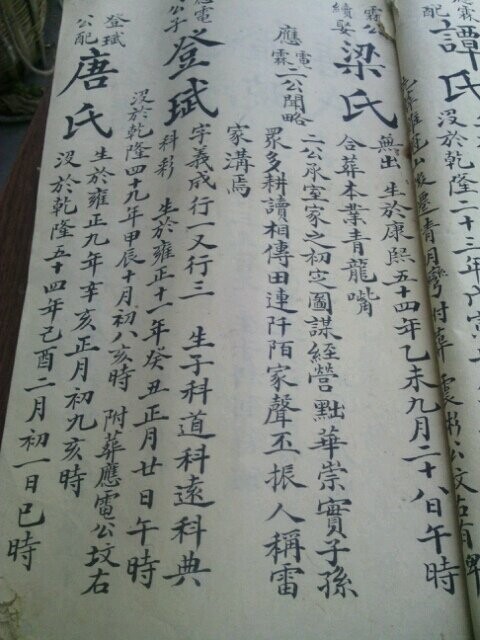 配
譚氏
没於乾隆二十三年戊寅
霖公
續娶
梁氏
無出 生於康熙五十四年乙未九月二十八日午時
合葬本業青龍嘴
應電霖二公聞略
二公承室家之初定圖謀經營黜華崇實子孫
眾多耕讀相傳田連阡陌家聲丕振人稱雷
家溝焉
應電
公子
登珷
字義成行一又行三 生子科道科遠科典
科彩 生於雍正十一年癸丑正月廿日午時
没於乾隆四十九年甲辰十月初八亥時 附葬應電公坟右
登珷
公配
唐氏
生於雍正九年辛亥正月初九亥時
没於乾隆五十四年己酉二月初一日巳時